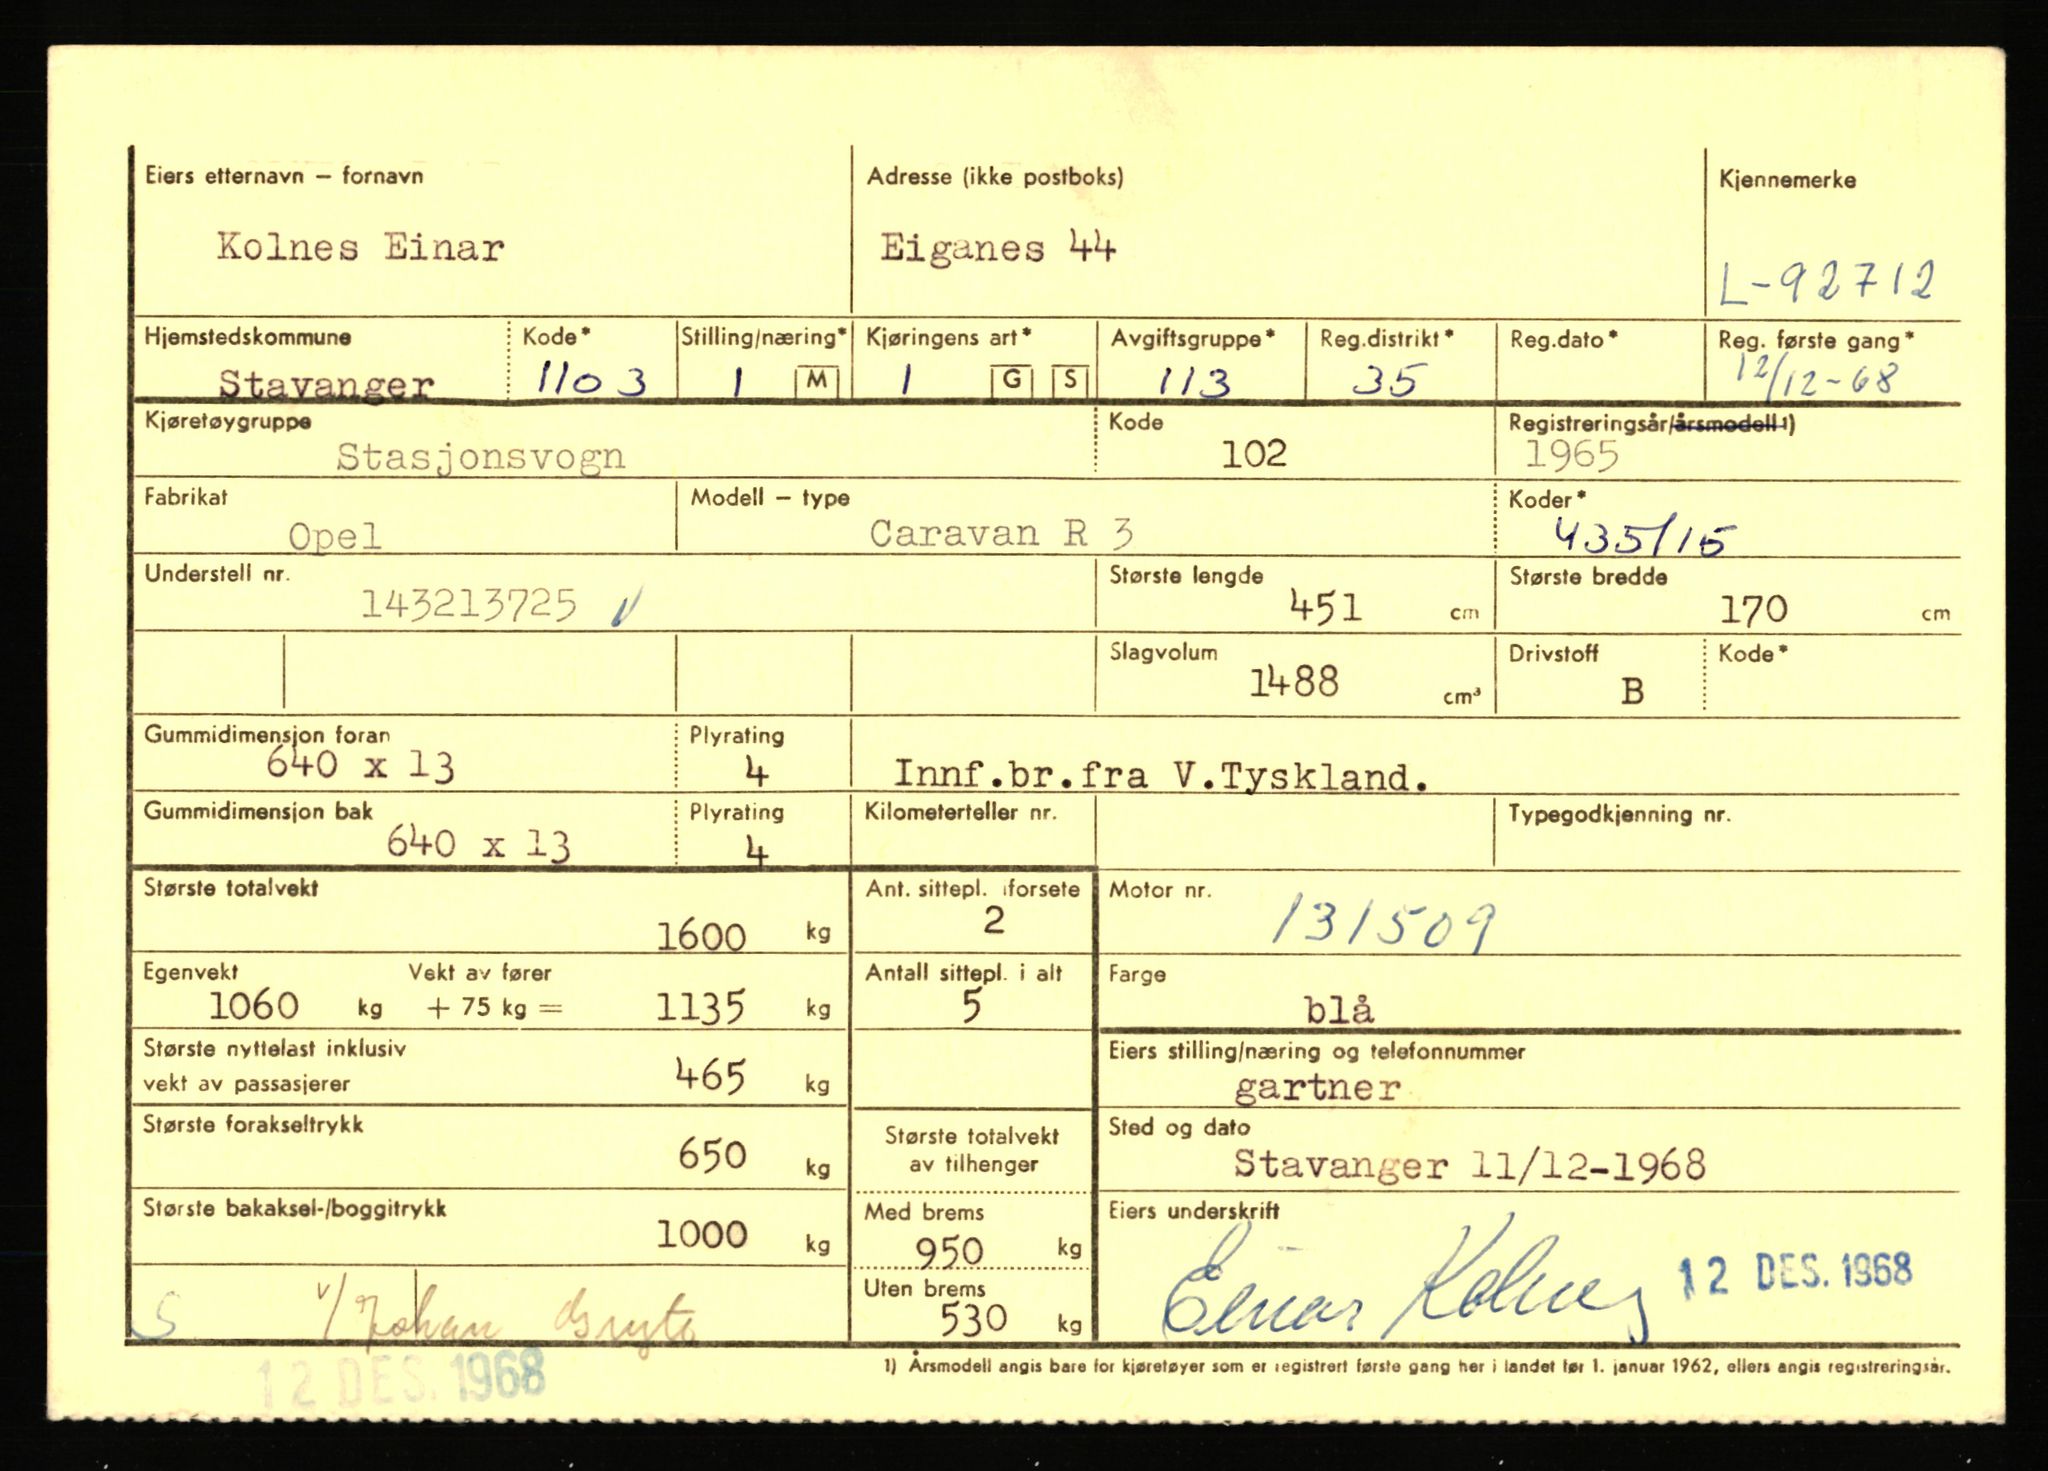 Eiers etternavn – fornavn
Kolnes Einar
Adresse (ikke postboks)
Eiganes 44
Kjennemerke
L-92712
Hjemstedskommune
Stavanger
Kode*
1103
Stilling/næring*
1 M
Kjøringens art*
1 G S
Avgiftsgruppe*
113
Reg.distrikt*
35
Reg.dato*
Reg. første gang*
12/12-68
Kjøretøygruppe
Stasjonsvogn
Kode
102
Registreringsår/årsmodell 1)
1965
Fabrikat
Opel
Modell – type
Caravan R 3
Koder*
435/15
Understell nr.
143213725
Største lengde
451 cm
Største bredde
170 cm
Slagvolum
1488 cm³
Drivstoff
B
Kode*
Gummidimensjon foran
640 x 13
Plyrating
4
Innf.br.fra V.Tyskland.
Gummidimensjon bak
640 x 13
Plyrating
4
Kilometerteller nr.
Typegodkjenning nr.
Største totalvekt
1600 kg
Ant. sittepl. i forsete
2
Motor nr.
131509
Egenvekt
1060 kg
Vekt av fører
+ 75 kg = 1135 kg
Antall sittepl. i alt
5
Farge
blå
Største nyttelast inklusiv
vekt av passasjerer
465 kg
Eiers stilling/næring og telefonnummer
gartner
Største forakseltrykk
650 kg
Største totalvekt
av tilhenger
Sted og dato
Stavanger 11/12-1968
Største bakaksel-/boggitrykk
1000 kg
Med brems
950 kg
Uten brems
530 kg
Eiers underskrift
Einar Kolnes
12 DES. 1968
S
v/Johan
12 DES. 1968
1) Årsmodell angis bare for kjøretøyer som er registrert første gang her i landet før 1. januar 1962, ellers angis registreringsår.